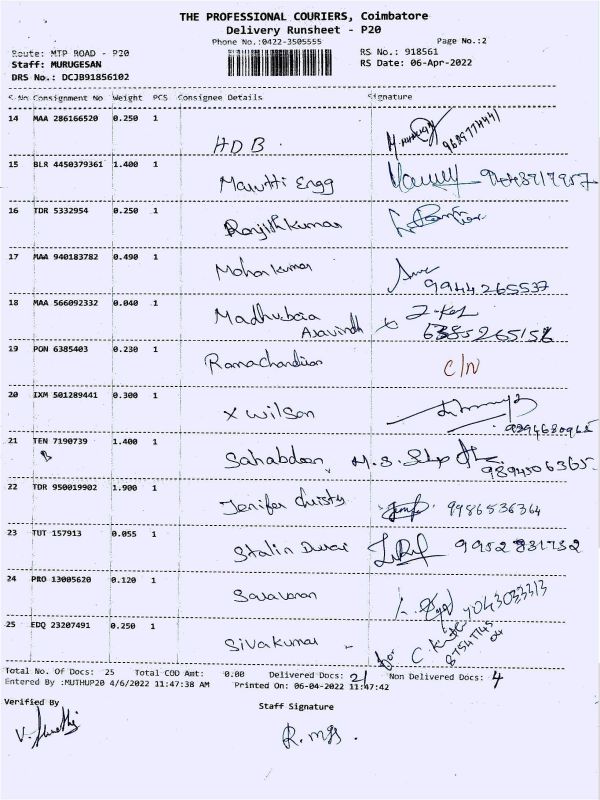 THE PROFESSIONAL COURIERS, Coimbatore
Delivery Runsheet - P20
Phone No.:0422-3505555 Page No.:2
Route: MTP ROAD - P20 RS No.: 918561
Staff: MURUGESAN RS Date: 06-Apr-2022
DRS No.: DCJB91856102
S.No Consignment No Weight PCS Consignee Details Signature
14 MAA 286166520 0.250 1
HDB
15 BLR 4450379361 1.400 1
Maruthi Engg
16 TDR 5332954 0.250 1
Ranjithkumar
17 MAA 940183782 0.490 1
Mohankumar
9944265537
18 MAA 566092332 0.040 1
Aravindh
19 PON 6385403 0.230 1
Ramachandran C/N
20 IXM 501289441 0.300 1
X Wilson
21 TEN 7190739 1.400 1
B Sahabdeen
9894506365
22 TDR 950019902 1.900 1
Jenifer Christy 9986536364
23 TUT 157913 0.055 1
Stalin Durai 9952831732
24 PRO 13005620 0.120 1
Saravanan
25 EDQ 23207491 0.250 1
Sivakumar -
Total No. Of Docs: 25 Total COD Amt: 0.00 Delivered Docs: 21 Non Delivered Docs: 4
Entered By :MUTHUP20 4/6/2022 11:47:38 AM Printed On: 06-04-2022 11:47:42
Verified By Staff Signature